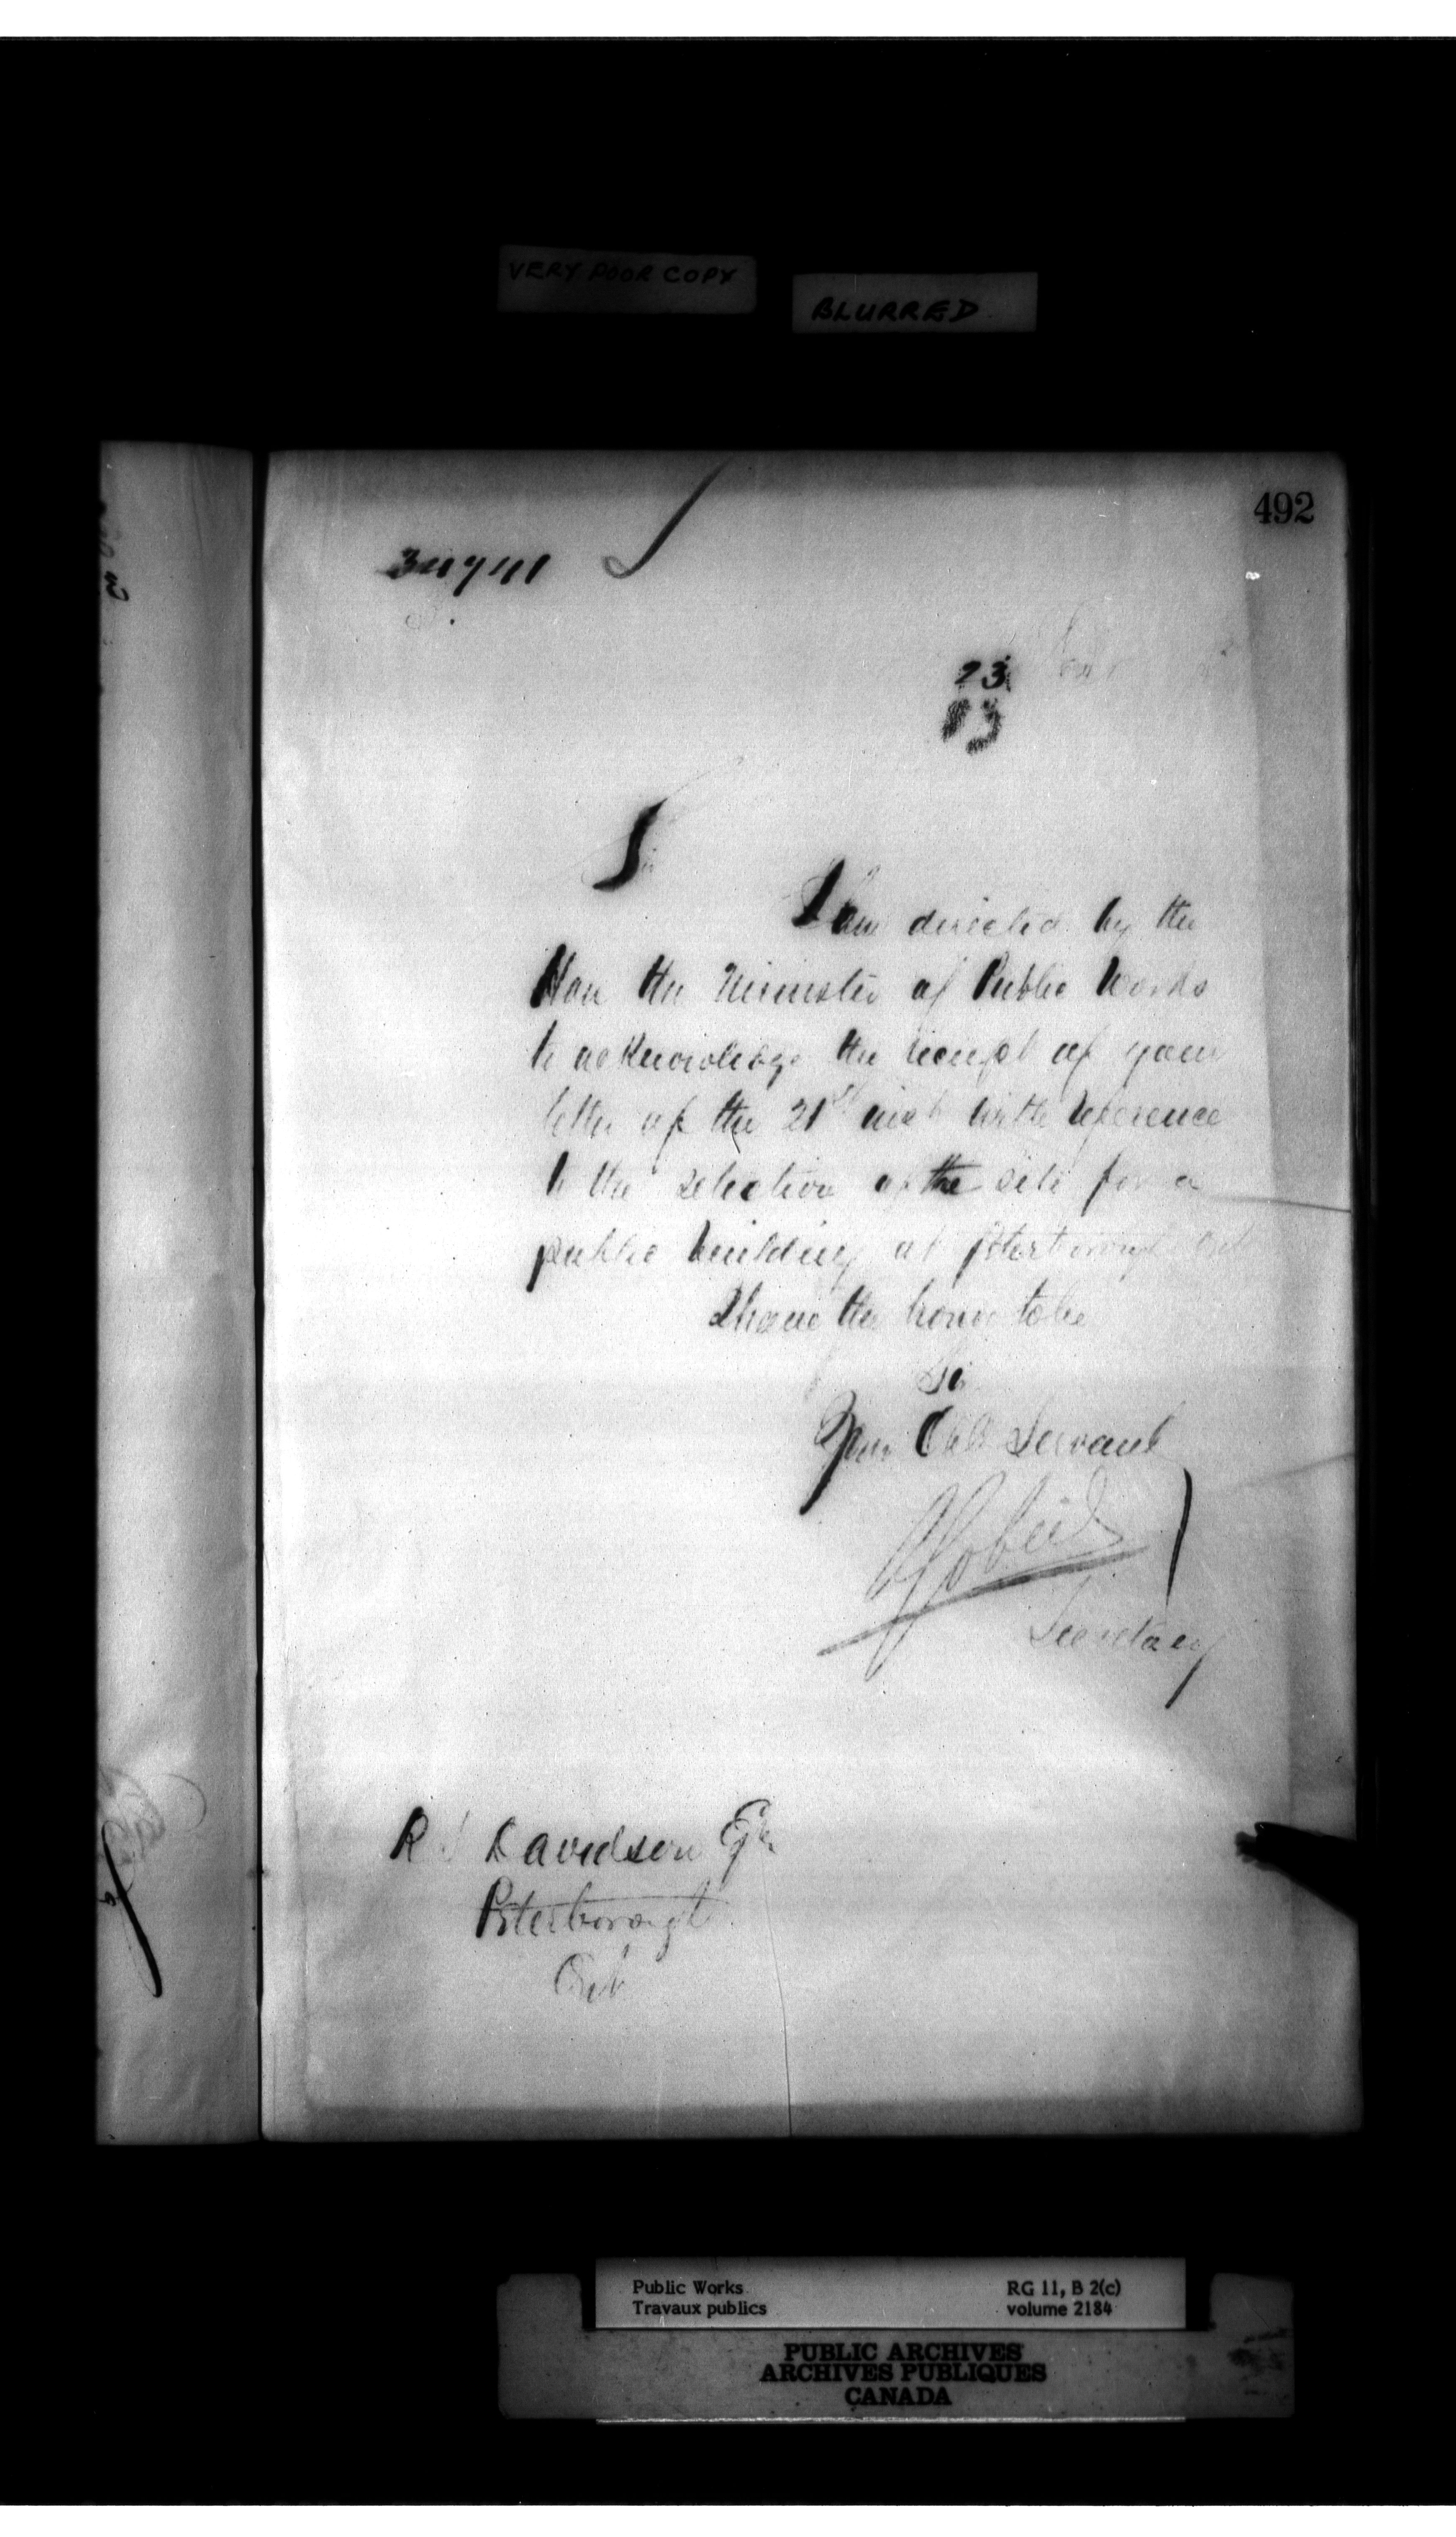 VERY POOR COPY
BLURRED
492
23
83
Sir
I am directed by the
Hon the Minister of Public Works
to acknowledge the receipt of your
letter of the 21st inst with reference
to the selection of the site for a
public building at Peterborough Ont
I have the honor to be
Sir
Your Obt Servant
Secretary
R Davidson Esq
Peterborough
Ont
Public Works
Travaux publics
RG 11, B 2(c)
volume 2184
PUBLIC ARCHIVES
ARCHIVES PUBLIQUES
CANADA